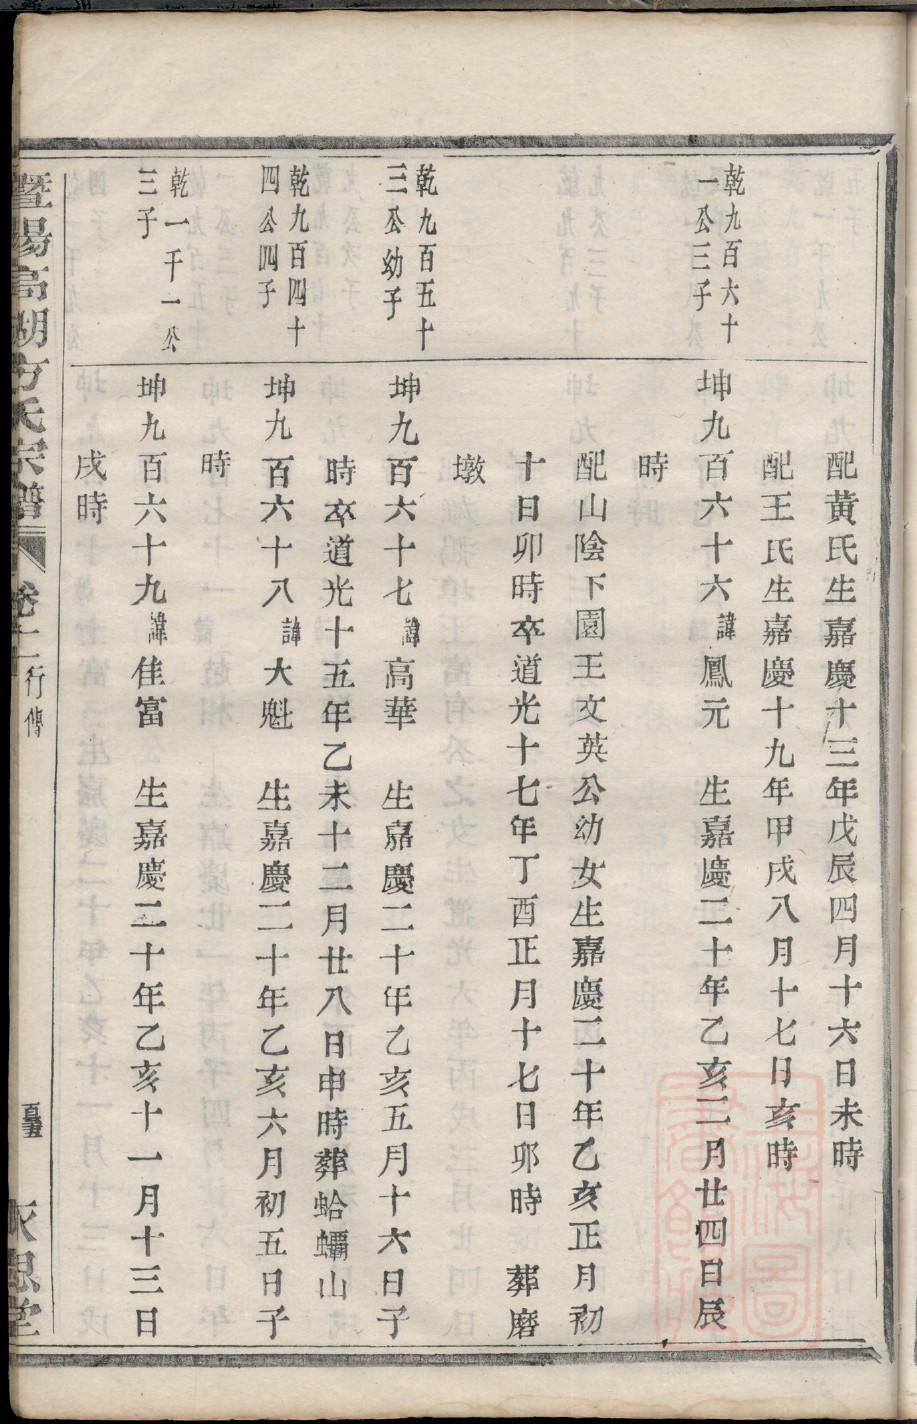 配黃氏生嘉慶十三年戊辰四月十六日未時
配王氏生嘉慶十九年甲戌八月十七日亥時
乾九百六十
一公三子
坤九百六十六諱鳳元 生嘉慶二十年乙亥二月廿四日辰
時
配山陰下園王文英公幼女生嘉慶二十年乙亥正月初
十日卯時卒道光十七年丁酉正月十七日卯時 葬磨
墩
乾九百五十
三公幼子
坤九百六十七諱高華 生嘉慶二十年乙亥五月十六日子
時卒道光十五年乙未十二月廿八日申時葬蛤蟵山
乾九百四十
四公四子
坤九百六十八諱大魁 生嘉慶二十年乙亥六月初五日子
時
乾一千一公
三子
坤九百六十九諱佳富 生嘉慶二十年乙亥十一月十三日
戌時
暨陽高湖方氏宗譜 卷二十 行傳 永思堂